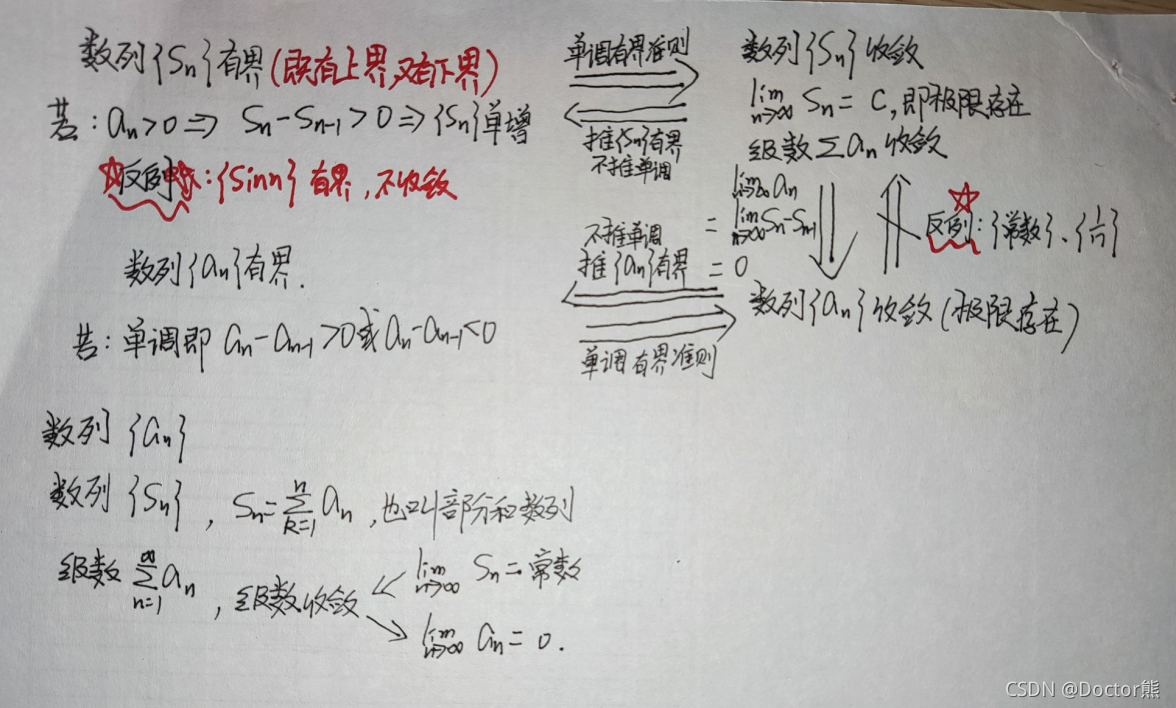 数列{Sn}有界(既有上界,又有下界)
若:an>0 ⇒ Sn-Sn-1>0 ⇒ {Sn}单增
☆反例☆:{Sinn}有界,不收敛
单调有界准则
推{Sn}有界
不推单调
数列{Sn}收敛
lim n→∞ Sn = C,即极限存在
级数Σan收敛
lim n→∞ an
= lim n→∞ Sn-Sn-1
= 0
☆
反列:{常数}、{1/n}
数列{an}有界.
若:单调即 an-an-1>0或an-an-1<0
不推单调
推{an}有界
单调有界准则
数列{an}收敛(极限存在)
数列 {an}
数列 {Sn} , Sn=Σ n k=1 an ,也叫部分和数列
级数 Σ ∞ n=1 an , 级数收敛
lim n→∞ Sn=常数
lim n→∞ an=0.
CSDN @Doctor熊